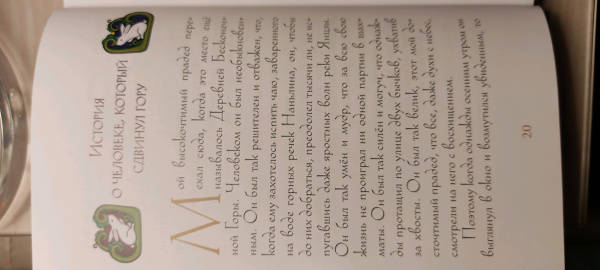 История
о человеке, который
сдвинул гору
Мой высокочтимый прадед пере-
ехал сюда, когда это место ещё
называлось Деревней Бесконеч-
ной Горы. Человеком он был необыкновен-
ным. Он был так решителен и отважен, что,
когда ему захотелось испить чаю, заваренного
на воде горных речек Наньлина, он, чтобы
до них добраться, преодолел тысячи ли, не ис-
пугавшись даже яростных волн реки Янцзы.
Он был так умён и мудр, что за всю свою
жизнь не проиграл ни одной партии в шах-
маты. Он был так силён и могуч, что однаж-
ды протащил по улице двух бычков, ухватив
за хвосты. Он был так велик, этот мой до-
сточтимый прадед, что все, даже духи с небес,
смотрели на него с восхищением.
Поэтому когда однажды осенним утром он
выглянул в окно и возмутился увиденным, то
20